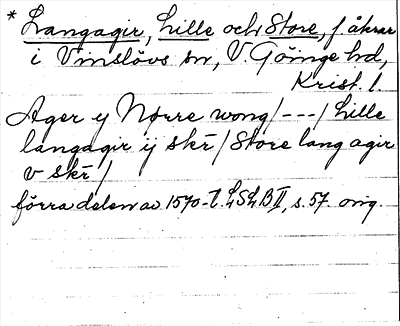 * Langagir, Lille och Store, f. åkrar
i Vinslövs sn, V. Göinge hd,
Krist. l.
Ager ij Nørre wong/---/Lille
langagir ij skr̄/Store langagir
v skr̄/
förra delen av 1570-t. LSLB II, s. 57. orig.